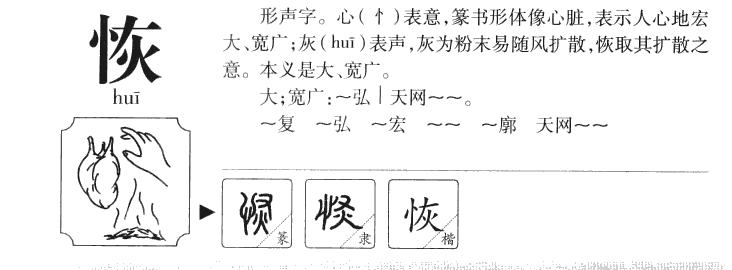 恢
huī
形声字。心(忄)表意,篆书形体像心脏,表示人心地宏
大、宽广;灰(huī)表声,灰为粉末易随风扩散,恢取其扩散之
意。本义是大、宽广。
大;宽广:～弘｜天网～～。
～复　～弘　～宏　～～　～廓　天网～～
恢 篆
恢 隶
恢 楷